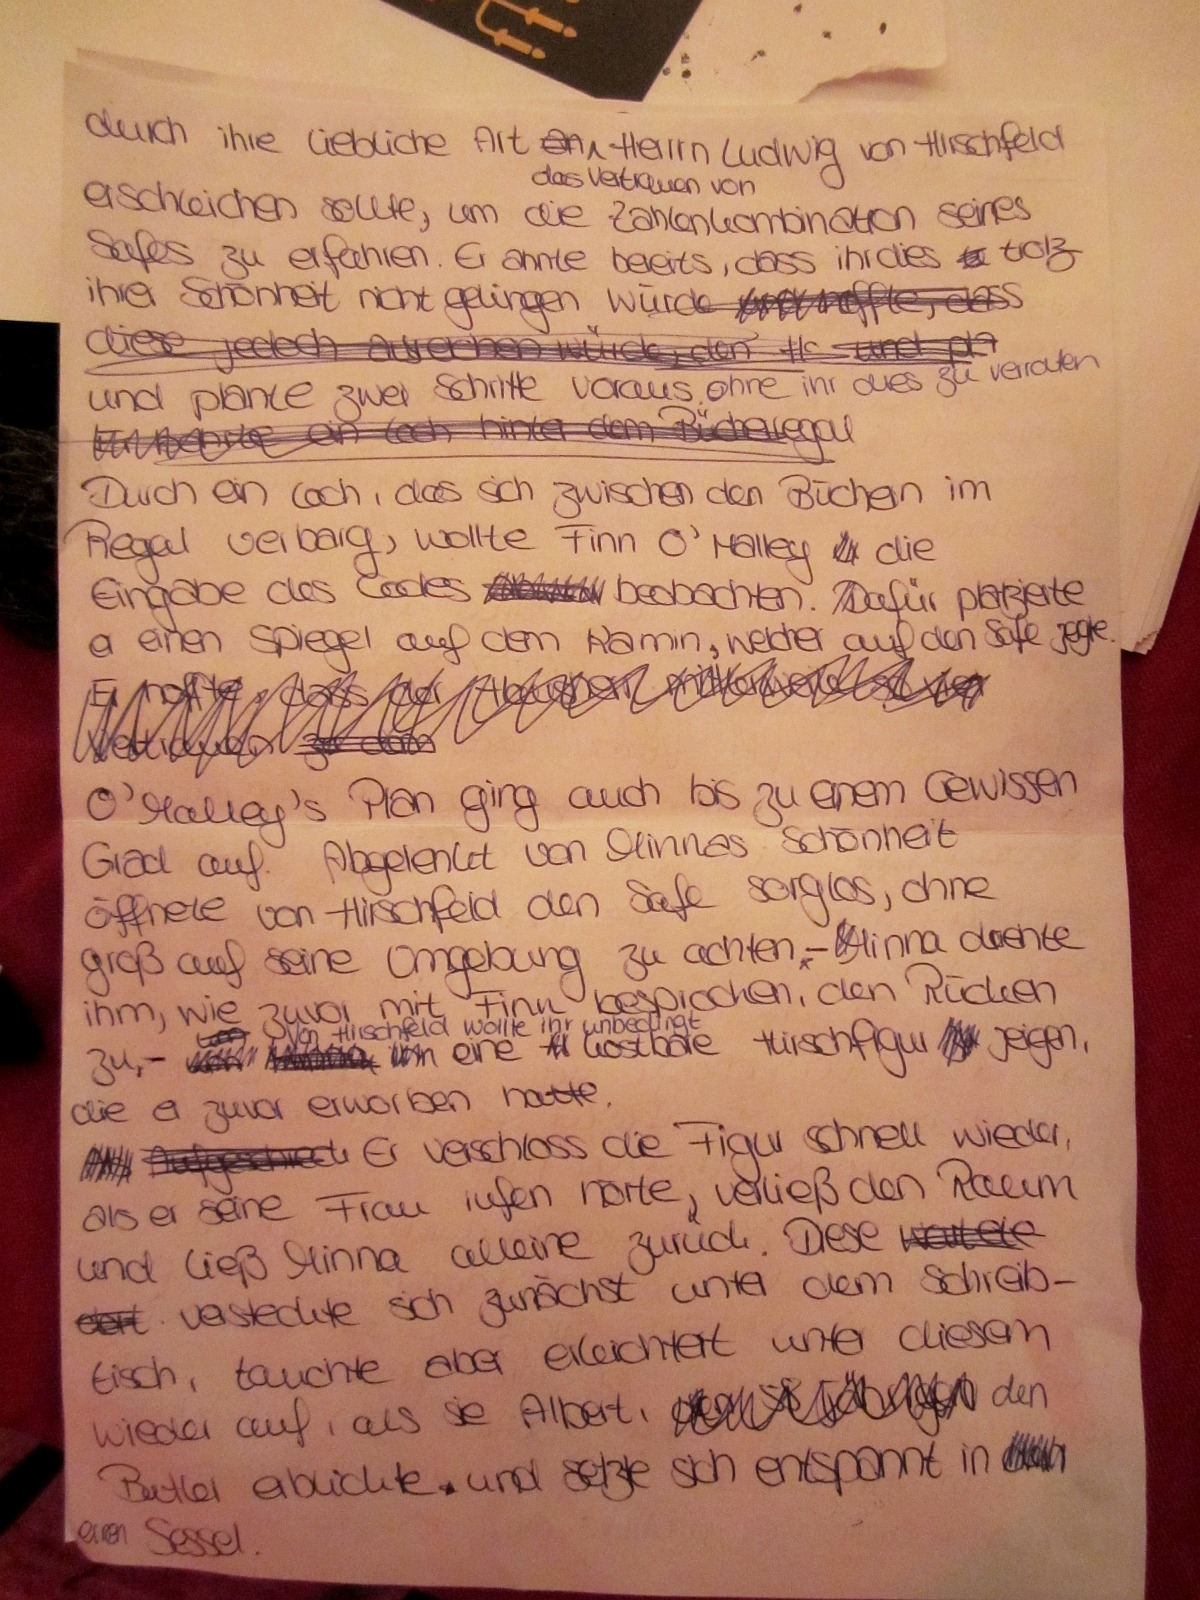 durch ihre liebliche Art an Herrn Ludwig von Hirschfeld
das Vertrauen von
erschleichen sollte, um die Zahlenkombination seines
Safes zu erfahren. Er ahnte bereits, dass ihr dies trotz
ihrer Schönheit nicht gelingen würde hoffte, dass
diese jedoch ausreichen würde, den und
und plante zwei Schritte voraus, ohne ihr dies zu verraten
ein Loch hinter dem Bücherregal
Durch ein Loch, das sich zwischen den Büchern im
Regal verbarg, wollte Finn O'Malley die
Eingabe des Codes beobachten. Dafür platzierte
er einen Spiegel auf dem Kamin, welcher auf den Safe zeigte.
Er hoffte, dass der
Vertrauen zu dem
O'Malley's Plan ging auch bis zu einem Gewissen
Grad auf. Abgelenkt von Minnas Schönheit
öffnete von Hirschfeld den Safe sorglos, ohne
groß auf seine Umgebung zu achten,- Minna drehte
ihm, wie zuvor mit Finn besprochen, den Rücken
von Hirschfeld wollte ihr unbedingt
zu,- eine kostbare Hirschfigur zeigen,
die er zuvor erworben hatte.
Aufgeschreckt Er verschloss die Figur schnell wieder,
als er seine Frau rufen hörte, verließ den Raum
und ließ Minna alleine zurück. Diese wartete
dort versteckte sich zunächst unter dem Schreib-
tisch, tauchte aber erleichtert unter diesem
wieder auf, als sie Albert, den
Butler erblickte. und setzte sich entspannt in
einen Sessel.